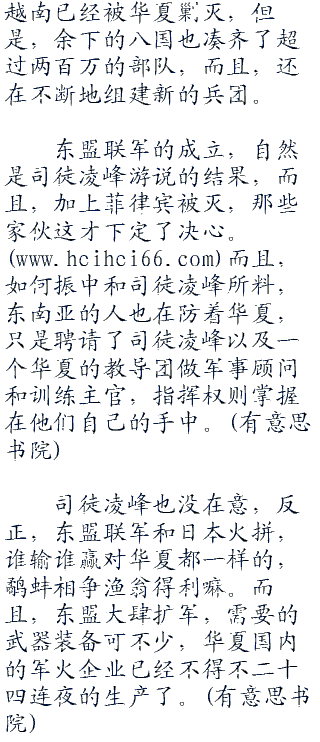 越南已经被华夏剿灭，但
是，余下的八国也凑齐了超
过两百万的部队，而且，还
在不断地组建新的兵团。
东盟联军的成立，自然
是司徒凌峰游说的结果，而
且，加上菲律宾被灭，那些
家伙这才下定了决心。
(www.hcihci66.com)而且，
如何振中和司徒凌峰所料，
东南亚的人也在防着华夏，
只是聘请了司徒凌峰以及一
个华夏的教导团做军事顾问
和训练主官，指挥权则掌握
在他们自己的手中。(有意思
书院)
司徒凌峰也没在意，反
正，东盟联军和日本火拼，
谁输谁赢对华夏都一样的，
鹬蚌相争渔翁得利嘛。而
且，东盟大肆扩军，需要的
武器装备可不少，华夏国内
的军火企业已经不得不二十
四连夜的生产了。(有意思书
院)